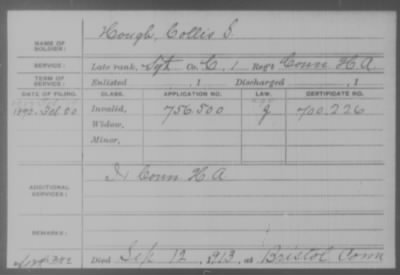 NAME OF SOLDIER: Hough, Collis S.
SERVICE: Late rank, Sgt Co. C, 1 Reg't Conn H.A.
TERM OF SERVICE: Enlisted , 1 Discharged , 1
DATE OF FILING. CLASS. APPLICATION NO. LAW. CERTIFICATE NO.
Invalid, 756.500 g 700.226
Widow,
Minor,
ADDITIONAL SERVICES: Conn H A
REMARKS:
Died Sep 12, 1913, at Bristol Conn